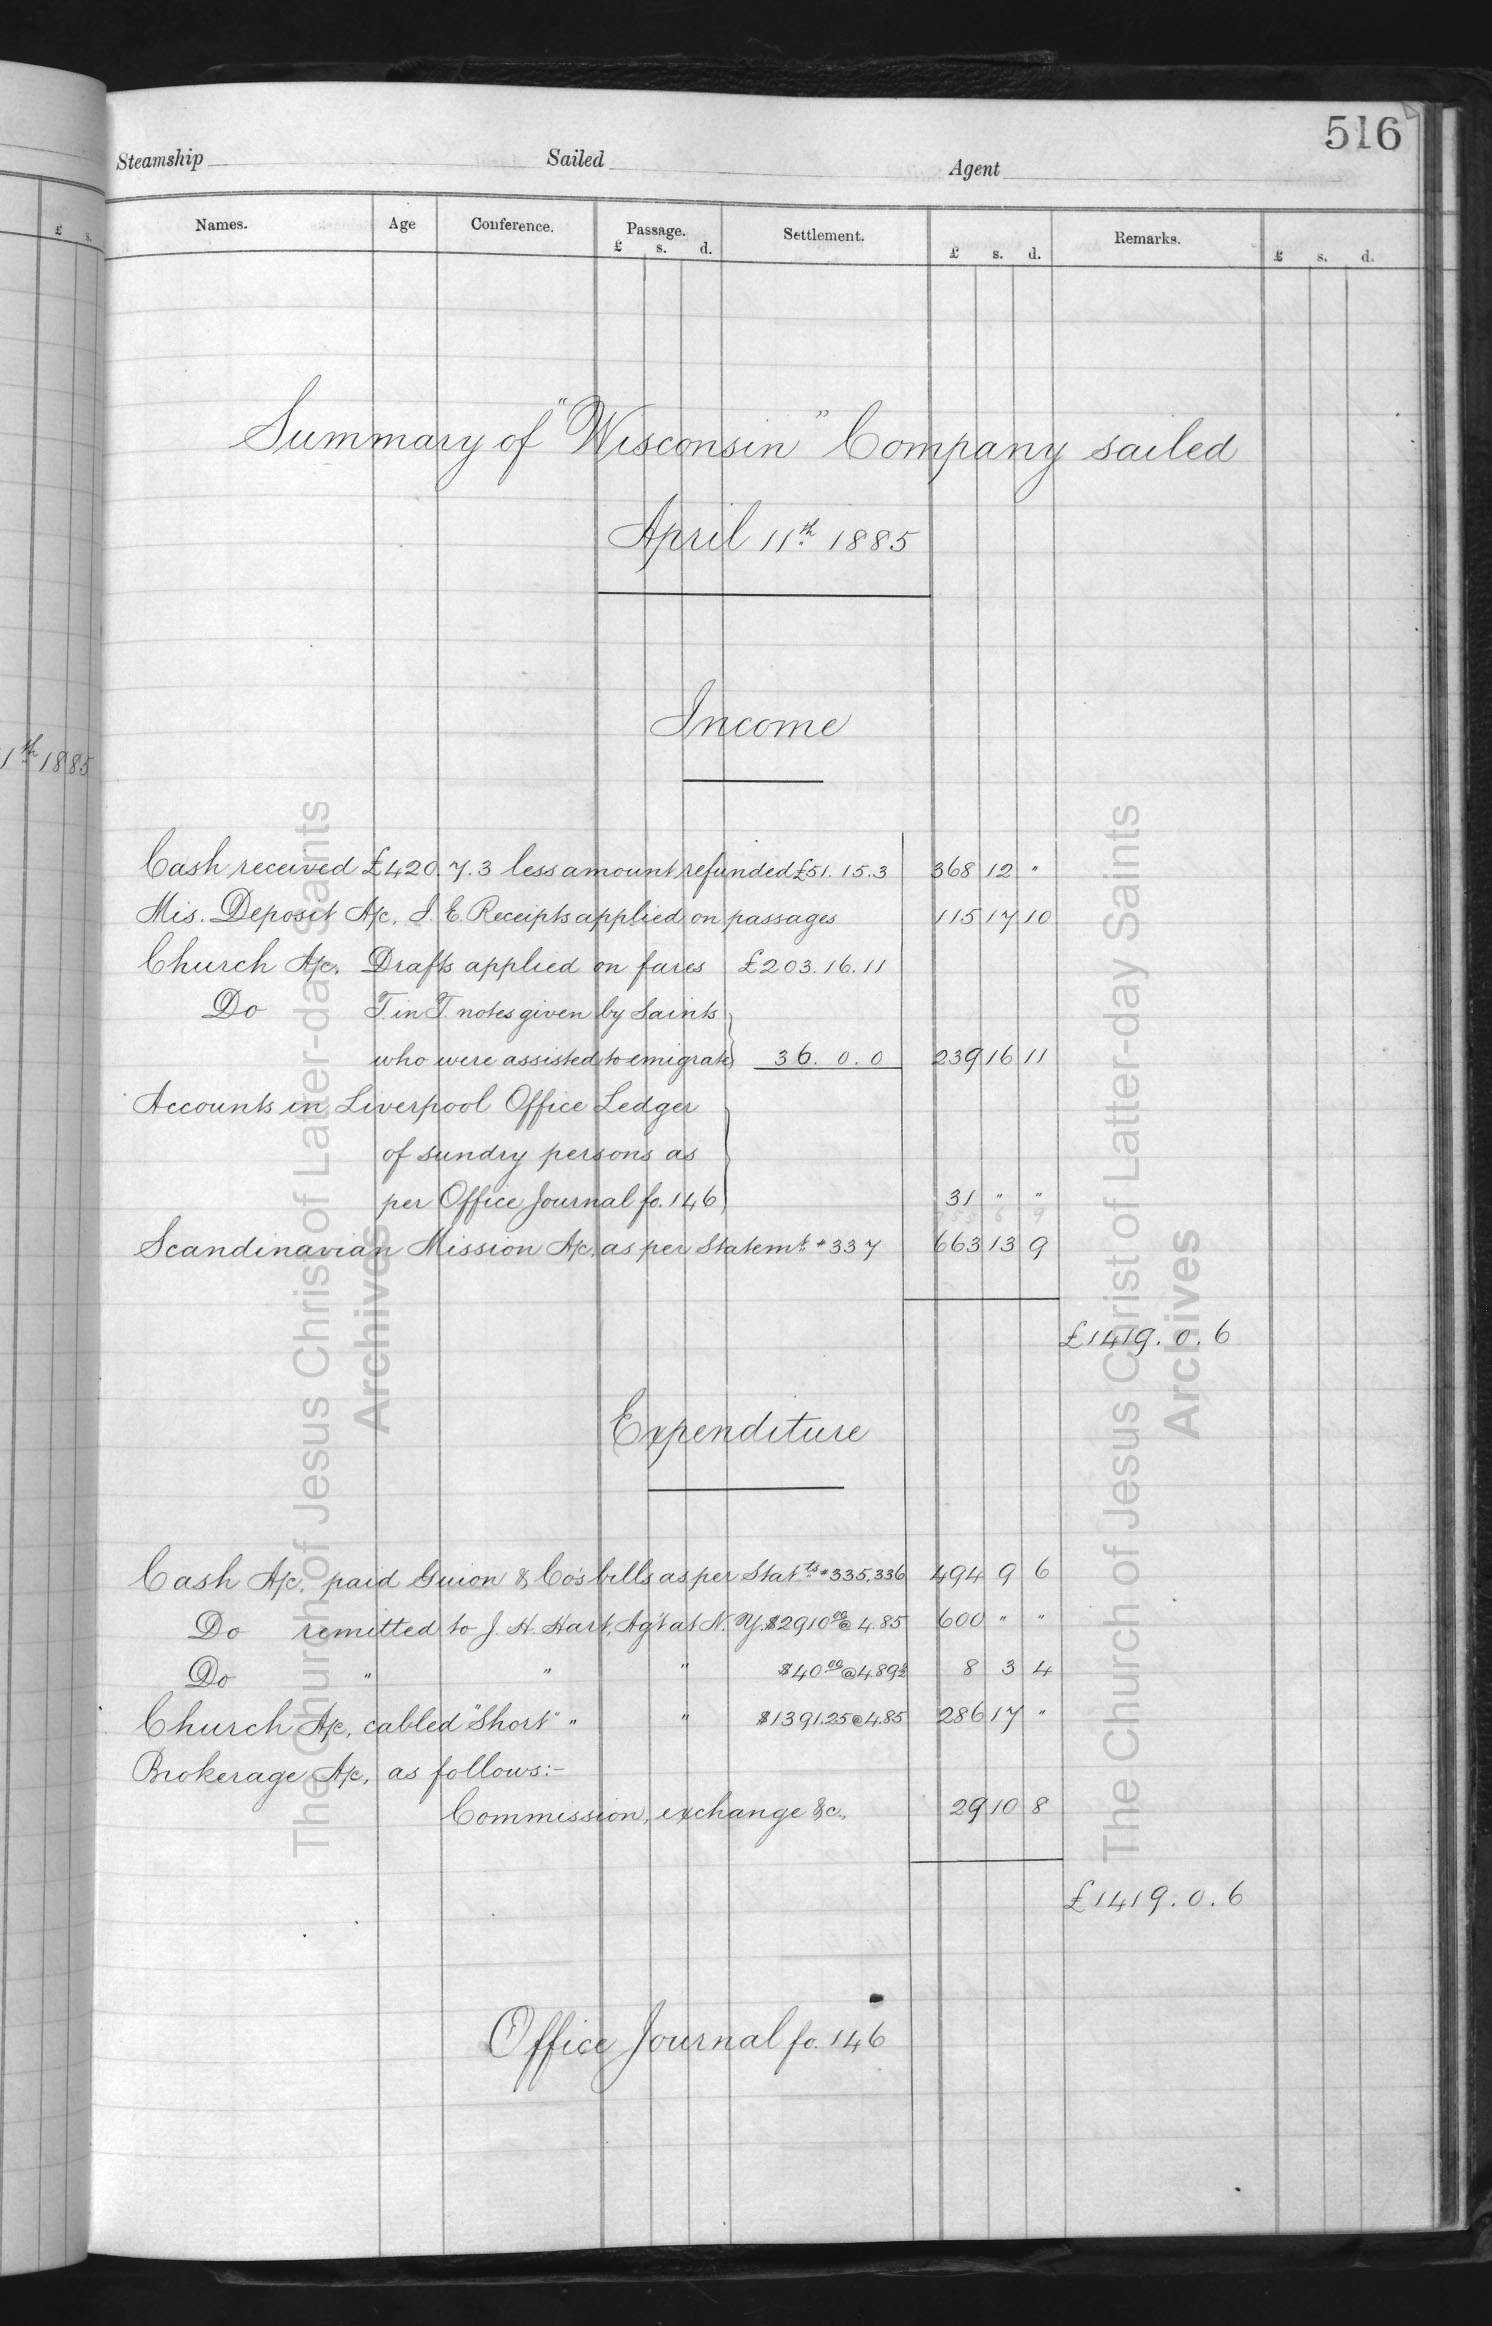 516
Steamship Sailed Agent
Names. Age Conference. Passage. Settlement. Remarks.
£ s. £ s. d. £ s. d. £ s. d.
Summary of "Wisconsin" Company sailed
April 11th 1885
1th 1885
Income
Cash received £420.7.3 less amount refunded £51.15.3 368 12 "
Mis. Deposit A/c, I. E. Receipts applied on passages 115 17 10
Church A/c, Drafts applied on fares £203.16.11
Do T. in T. notes given by Saints
who were assisted to emigrate 36. 0. 0 239 16 11
Accounts in Liverpool Office Ledger
of sundry persons as
per Office Journal fo. 146 31 " "
755 6 9
Scandinavian Mission A/c, as per Statemt. # 337 663 13 9
£1419. 0. 6
Expenditure
Cash A/c, paid Guion & Co's bills as per Statts. # 335, 336 494 9 6
Do remitted to J. H. Hart, Ag't at N. Y. $2910 00 @ 4.85 600 " "
Do " " " $40 00 @ 4.89½ 8 3 4
Church A/c, cabled "Short" " " $1391.25 @ 4.85 286 17 "
Brokerage A/c, as follows:-
Commission, exchange &c., 29 10 8
£1419. 0. 6
Office Journal fo. 146
The Church of Jesus Christ of Latter-day Saints
Archives
The Church of Jesus Christ of Latter-day Saints
Archives